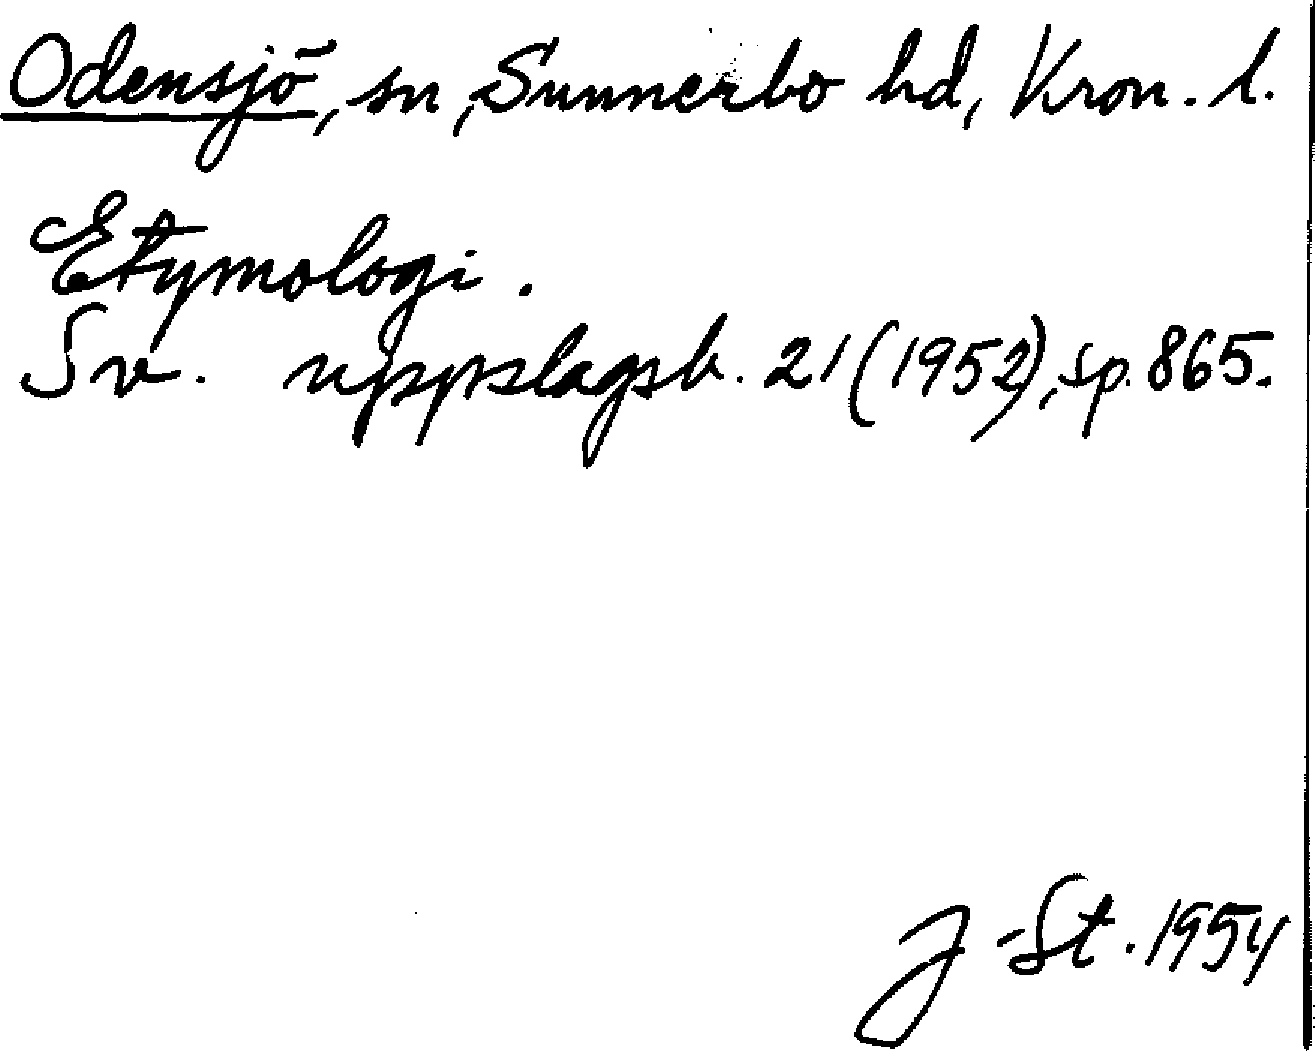 Odensjö, sn, Sunnerbo hd, Kron. l.
Etymologi.
Sv. uppslagsb. 21 (1952), sp. 865.
J-St. 1954